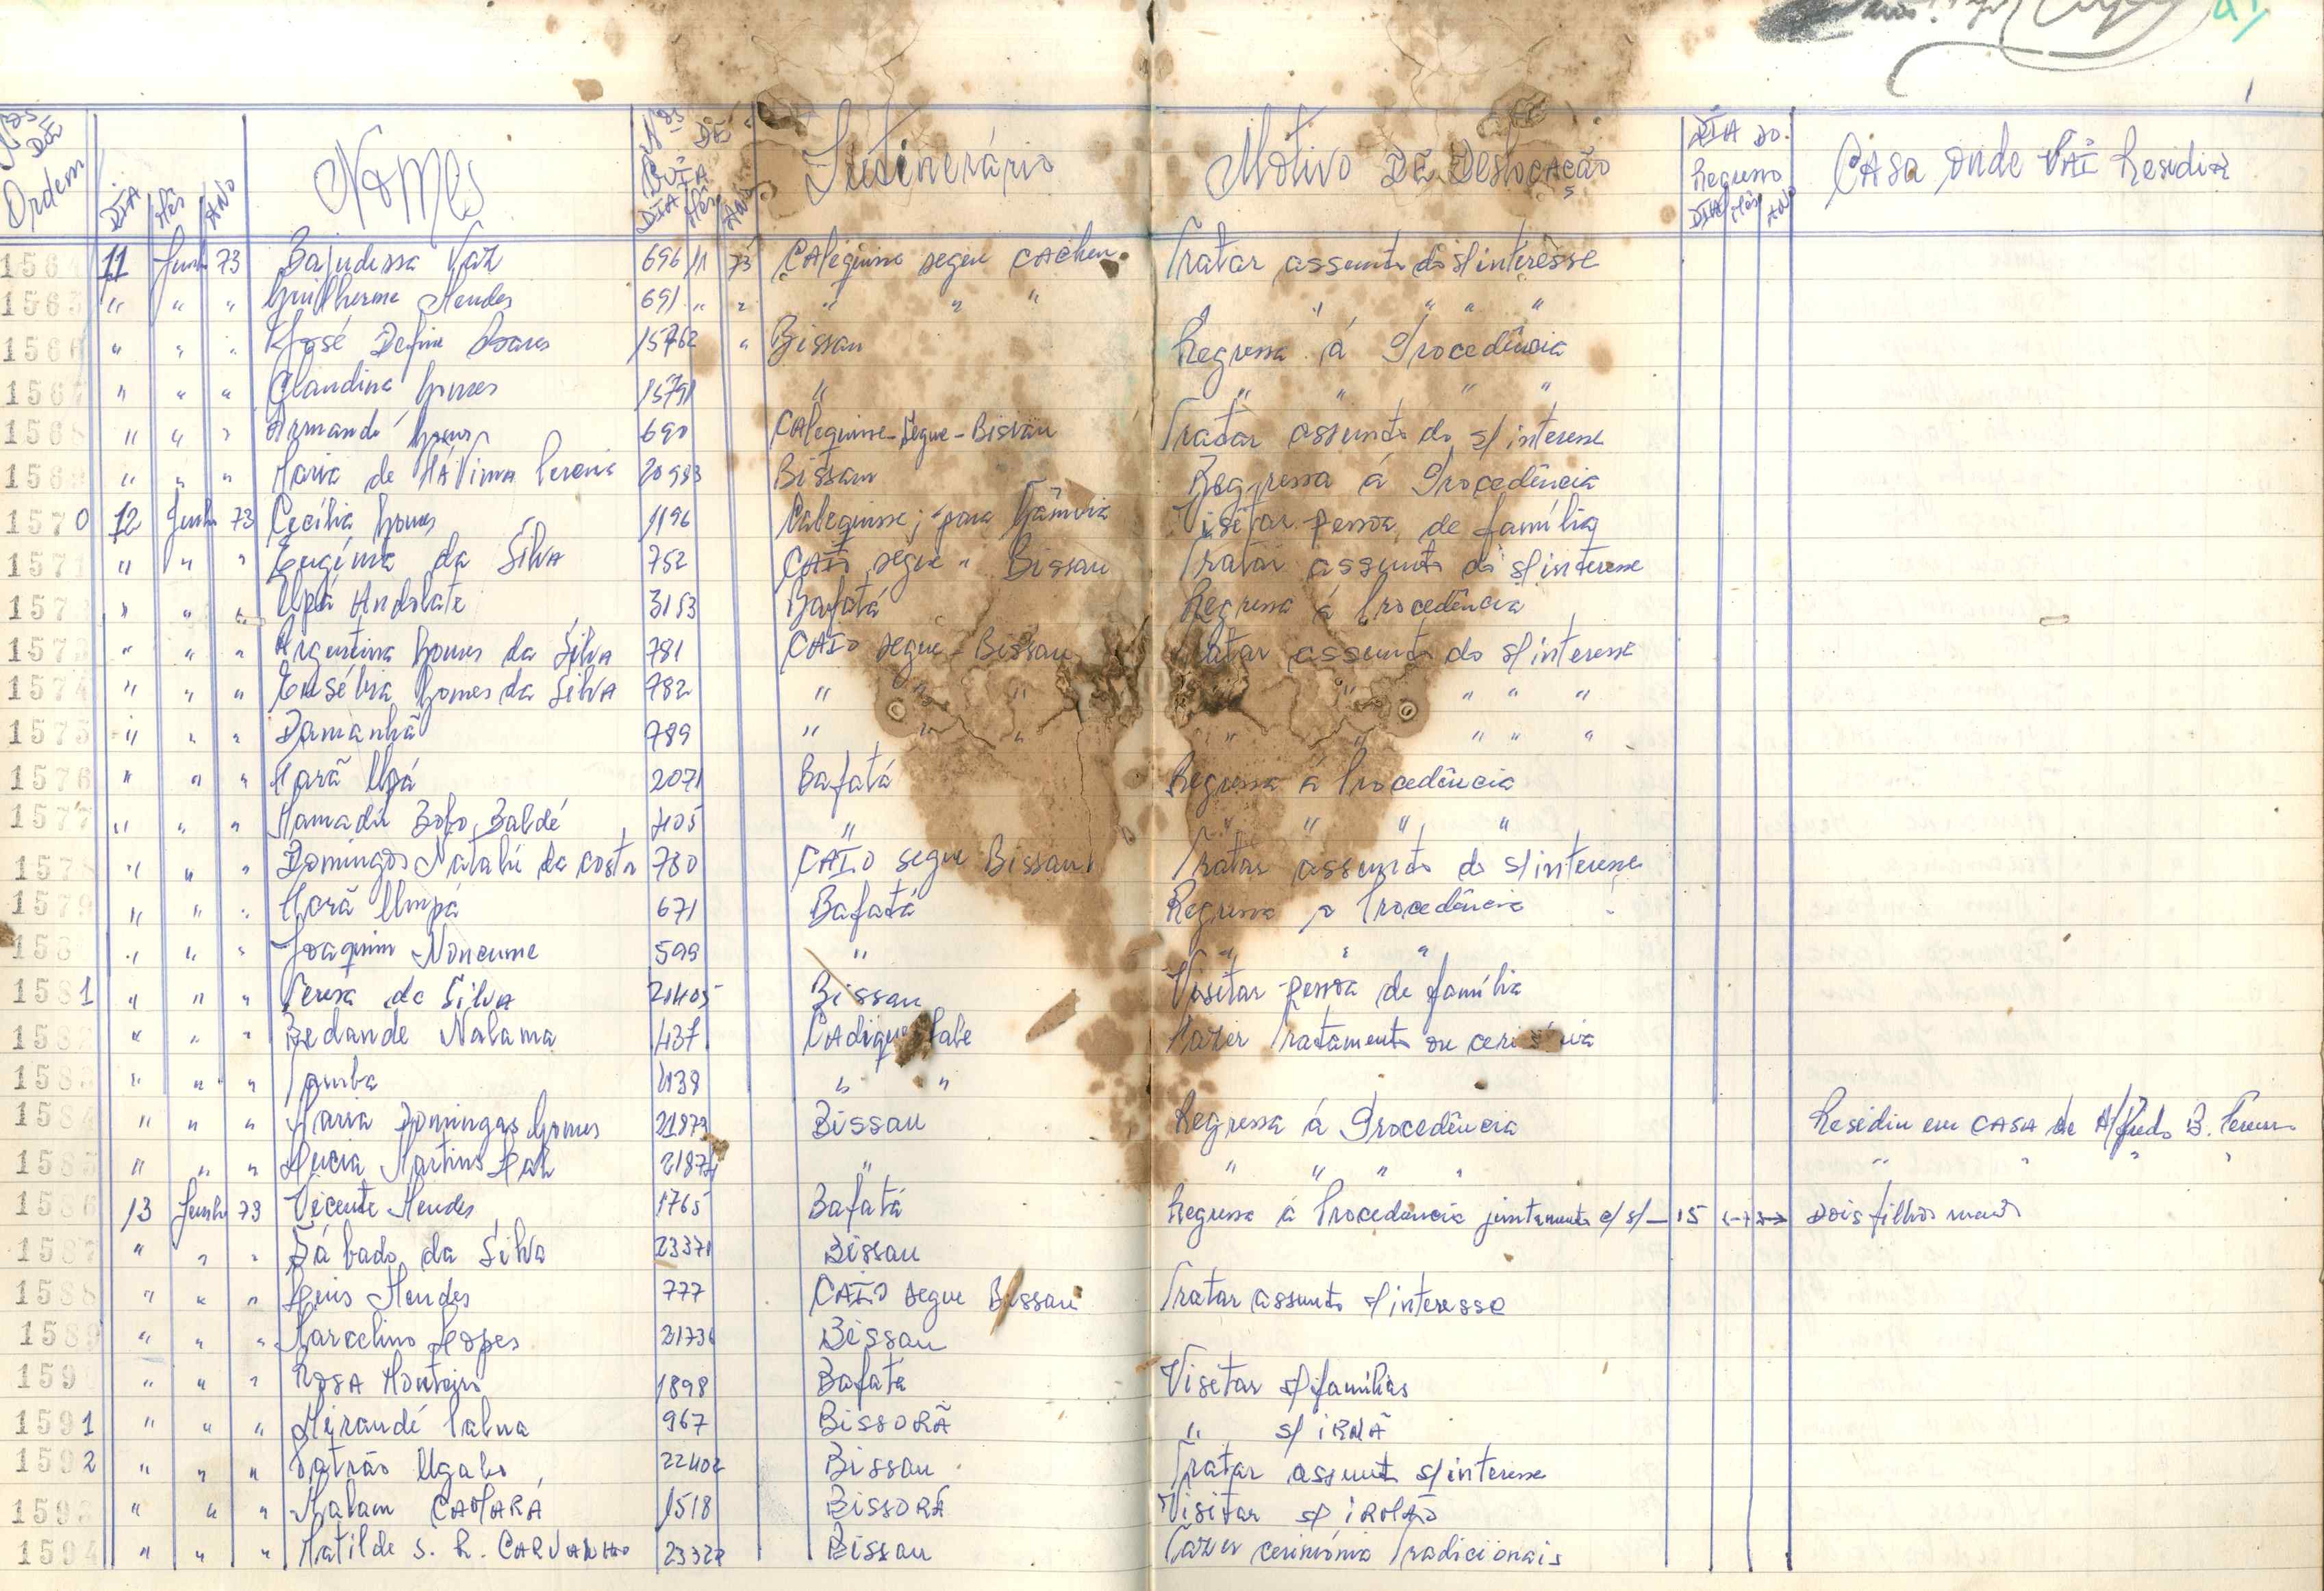 Nos DE Ordem DIA Mês ANO Nomes Nos DE GUIA DIA Mês ANO Itinerário Motivo DE Deslocação DIA DO Regresso DIA Mês ANO CASA onde VAI Residir
1564 11 Junho 73 Vaz 696 11 73 Caleguisse segue CACHEU Tratar assunto do s/interesse
1565 " " " Guilherme Mendes 691 " " " " " " " " "
1566 " " " José Soares 15762 " Bissau Regressa á Procedência
1567 " " " Claudina Gomes 15791 " " " " "
1568 " " " Armando Gomes 690 CAleguisse-Segue-Bissau Tratar assunto do s/interesse
1569 " " " Maria de FÁTima Pereira 20983 Bissau Regressa á Procedência
1570 12 Junho 73 Cecília Gomes 1196 Caleguisse; para Gâmbia Visitar pessoa de família
1571 " " " Eugénia da SilvA 752 CAIO segue " Bissau Tratar assunto do s/interesse
157 " " " Upá 3153 Bafatá Regressa á Procedência
1573 " " " Argentina Gomes da SilvA 781 CAIO segue - Bissau Tratar assunto do s/interesse
1574 " " " Eusébia Gomes da SilvA 782 " " " " " " " "
1575 " " " Damanhã 789 " " " " " " " "
1576 " " " Upá 2071 Bafatá Regressa á Procedência
1577 " " " Mamadú Bobo Baldé 1405 " " " " "
1578 " " " Domingos da costa 780 CAIO segue Bissau Tratar assunto do s/interesse
1579 " " " Umpá 671 Bafatá Regressa a Procedência
158 " " " Joaquim Noncume 599 " " " "
1581 " " " Teresa da SilvA 21405 Bissau Visitar pessoa de família
1582 " " " Bedande Nalama 1437 Fazer Tratamento ou
1583 " " " 1439 " "
1584 " " " Maria Domingas Gomes 21879 Bissau Regressa á Procedência Residiu em CASA de Alfredo B.
1585 " " " Lucia Martins 2187 " " " " " " " " "
1586 13 Junho 73 Vicente Mendes 1765 Bafatá Regressa á Procedência juntamente c/ s/ — 15 Dois filhos
1587 " " " Sábado da Silva 23371 Bissau
1588 " " " Luis Mendes 777 CAIO segue Bissau Tratar assunto s/interesse
1589 " " " Marcelino Lopes 21736 Bissau
159 " " " ROSA Monteiro 1898 Bafatá Visetar s/famílias
1591 " " " 967 BissoRÃ " s/ iRMÃ
1592 " " " 22402 Bissau Tratar assunto s/interesse
1593 " " " Malam CAMARÁ 1518 BissoRÃ Visitar s/ iRMÃO
1594 " " " Matilde S. R. CARVALHO 23327 Bissau Fazer cerimónia Tradicionais